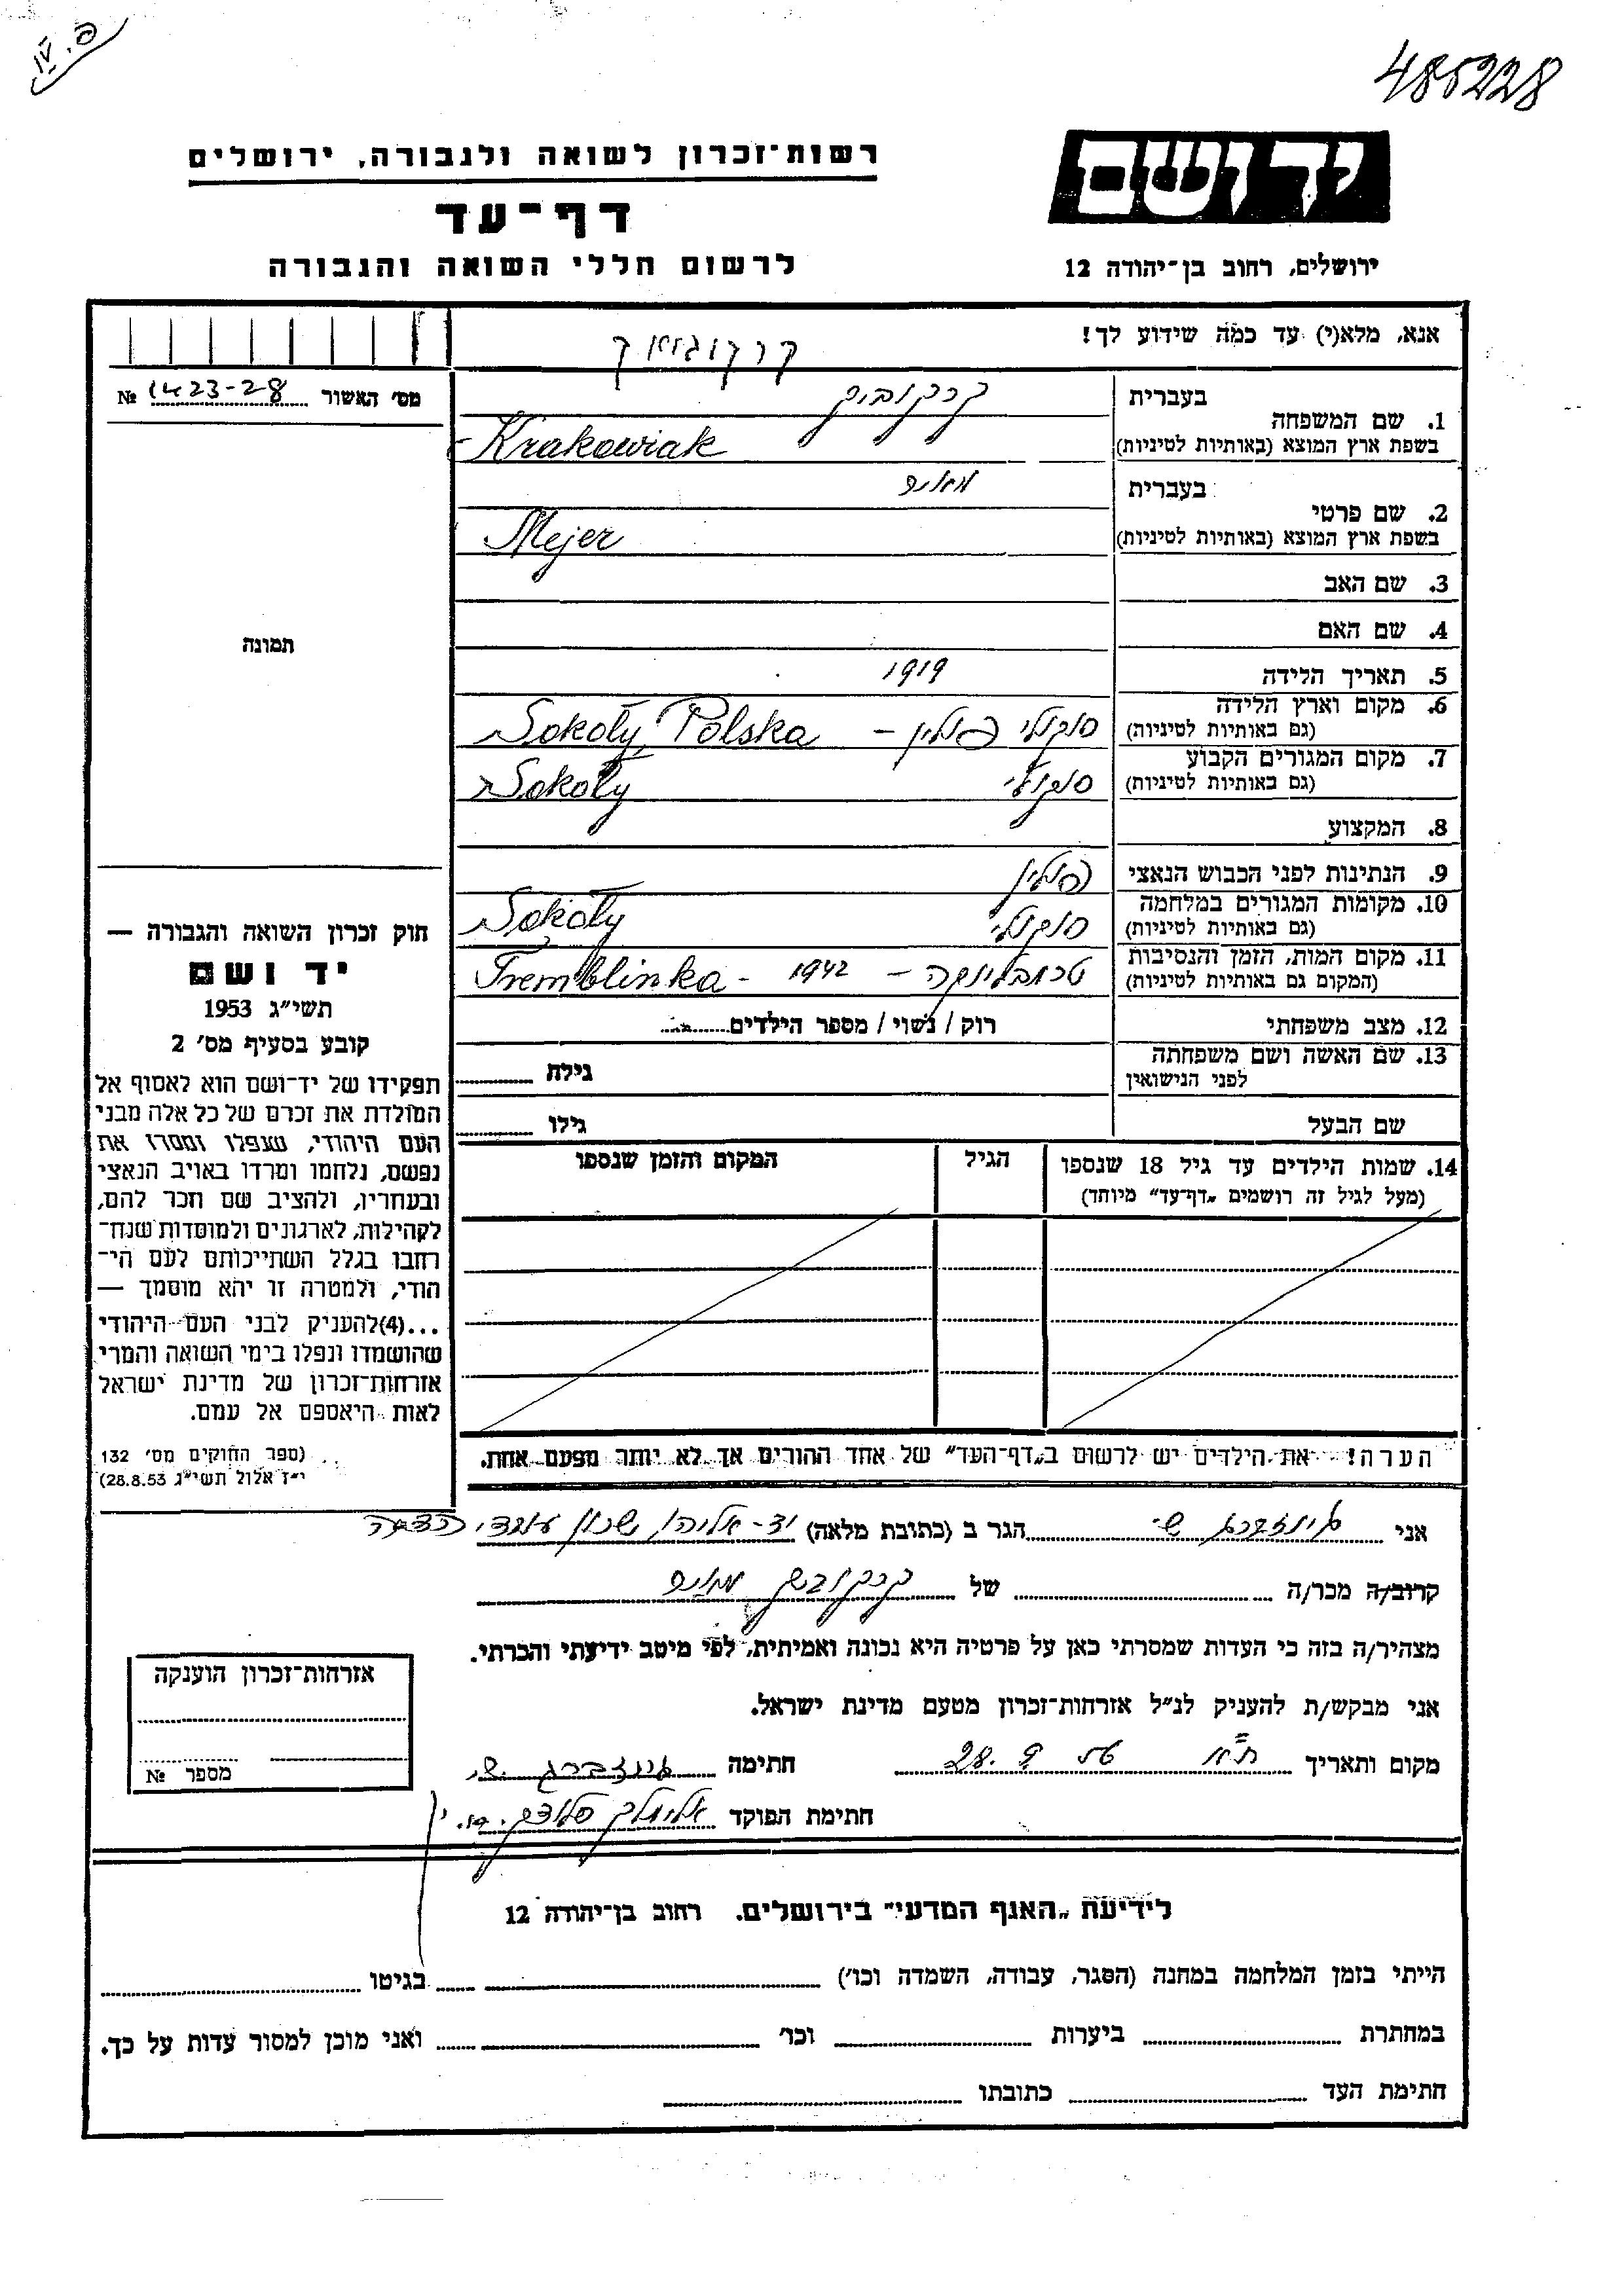 פ. IV
485228
יד ושם
רשות־זכרון לשואה ולגבורה, ירושלים
דף־עד
לרשום חללי השואה והגבורה
ירושלים, רחוב בן־יהודה 12
אנא, מלא(י) עד כמה שידוע לך!
מס׳ האשור № 1423-28
תמונה
1. שם המשפחה
בעברית
בשפת ארץ המוצא (באותיות לטיניות) Krakowiak
2. שם פרטי
בעברית
בשפת ארץ המוצא (באותיות לטיניות) Mejer
3. שם האב
4. שם האם
5. תאריך הלידה 1919
6. מקום וארץ הלידה (גם באותיות לטיניות) סוקולי פולין – Sokoły, Polska
7. מקום המגורים הקבוע (גם באותיות לטיניות) סוקולי Sokoły
8. המקצוע
9. הנתינות לפני הכבוש הנאצי פולין
10. מקומות המגורים במלחמה (גם באותיות לטיניות) סוקולי Sokoły
11. מקום המות, הזמן והנסיבות (המקום גם באותיות לטיניות) טרמבלינקה – 1942 - Tremblinka
12. מצב משפחתי רוק / נשוי / מספר הילדים
13. שם האשה ושם משפחתה לפני הנישואין גילה
שם הבעל גילו
14. שמות הילדים עד גיל 18 שנספו הגיל המקום והזמן שנספו
(מעל לגיל זה רושמים „דף־עד״ מיוחד)
הערה! את הילדים יש לרשום ב„דף־העד״ של אחד ההורים אך לא יותר מפעם אחת.
חוק זכרון השואה והגבורה —
יד ושם
תשי״ג 1953
קובע בסעיף מס׳ 2
תפקידו של יד־ושם הוא לאסוף אל
המולדת את זכרם של כל אלה מבני
העם היהודי, שנפלו ומסרו את
נפשם, נלחמו ומרדו באויב הנאצי
ובעוזריו, ולהציב שם וזכר להם,
לקהילות, לארגונים ולמוסדות שנח־
רבו בגלל השתייכותם לעם הי־
הודי, ולמטרה זו יהא מוסמך —
...(4) להעניק לבני העם היהודי
שהושמדו ונפלו בימי השואה והמרי
אזרחות־זכרון של מדינת ישראל
לאות היאספם אל עמם.
(ספר החוקים מס׳ 132
י״ז אלול תשי״ג 28.8.53)
אני גינזברג ש. הגר ב (כתובת מלאה) יד-אליהו שכון עובדי
קרוב/ה מכר/ה של
מצהיר/ה בזה כי העדות שמסרתי כאן על פרטיה היא נכונה ואמיתית, לפי מיטב ידיעתי והכרתי.
אני מבקש/ת להעניק לנ״ל אזרחות־זכרון מטעם מדינת ישראל.
מקום ותאריך ת״א 28. 9 חתימה גינזברג ש.
חתימת הפוקד
אזרחות־זכרון הוענקה
מספר №
לידיעת „האגף המדעי״ בירושלים. רחוב בן־יהודה 12
הייתי בזמן המלחמה במחנה (הסגר, עבודה, השמדה וכו׳) בגיטו
במחתרת ביערות וכו׳ ואני מוכן למסור עדות על כך.
חתימת העד כתובתו